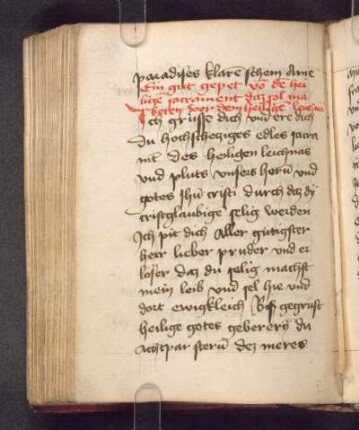 paradises klare schein Ame
Ein gut gepet vo de hei
lige sacrament daz sol ma
beten vor dem heilige
Ich grüsse dich vnd ere dich
du hochscheziges edles sacra
mt des heiligen leichnas
vnd pluts vnsers herū vnd
gotes Jhū cristi durch daz dy
cristglaubige selig werden
Ich pit dich Aller gutigster
herr lieber pruder vnd er
loser daz du selig machst
mein leib vnd sel hie vnd
dort ewigkleich Bis gegrüst
heilige gotes gebererī du
achtpar sterū dez meres